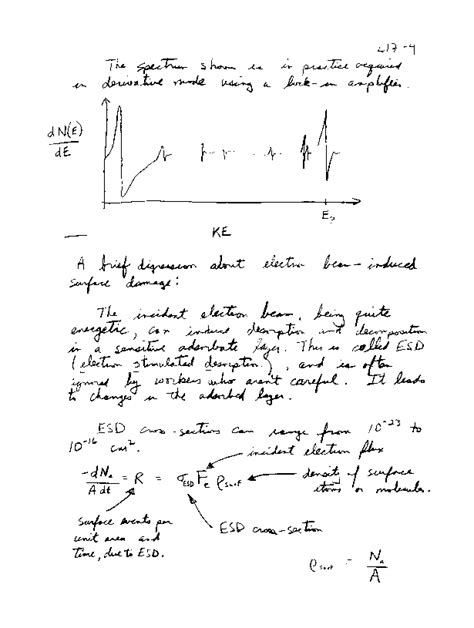 L17-4
The spectrum shown is in practice acquired
in derivative mode using a lock-in amplifier.
dN(E)
dE
E₀
KE
A brief digression about electron beam-induced
surface damage:
The incident electron beam, being quite
energetic, can induce desorption and decomposition
in a sensitive adsorbate layer. This is called ESD
(electron stimulated desorption), and is often
ignored by workers who aren't careful. It leads
to changes in the adsorbed layer.
ESD cross-sections can range from 10⁻²³ to
10⁻¹⁶ cm².
incident electron flux
-dNₐ/A dt = R = σ_ESD Fₑ ρ_surf
density of surface
atoms or molecules.
surface events per
unit area and
time, due to ESD.
ESD cross-section
ρ_surf = Nₐ/A